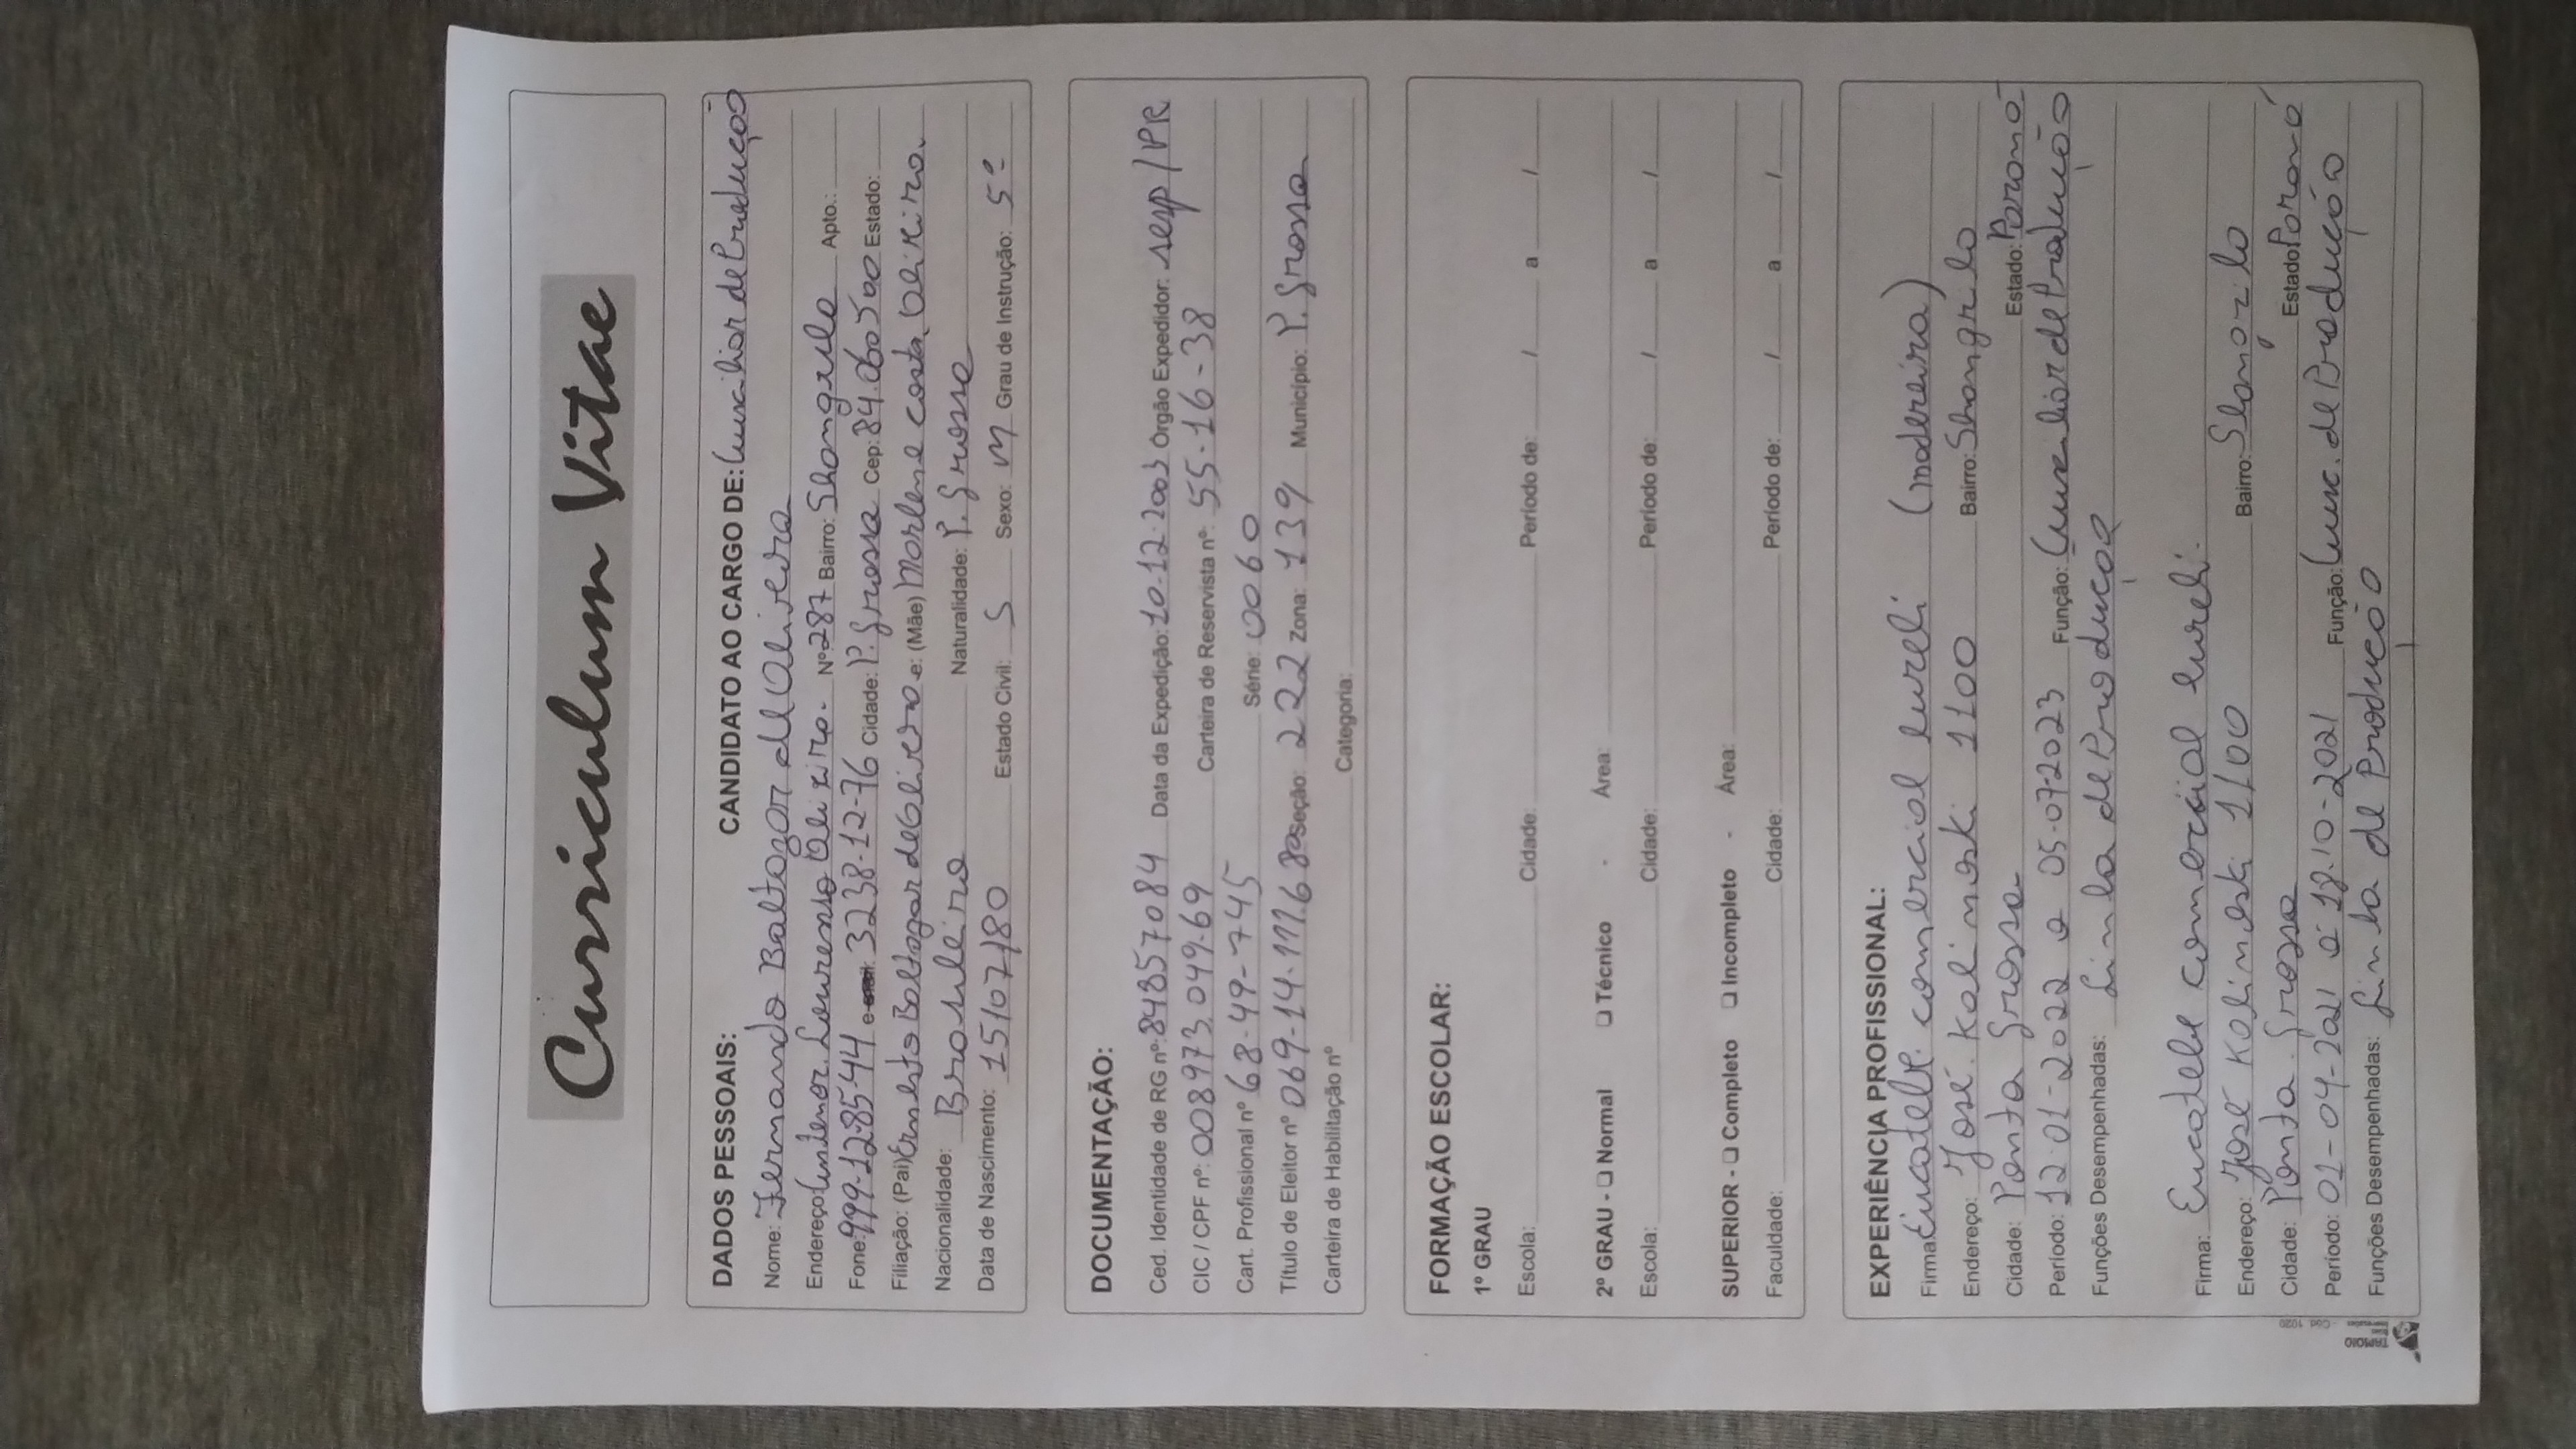 Curriculum Vitae
DADOS PESSOAIS: CANDIDATO AO CARGO DE: Auxiliar de Produção
Nome: Fernando Baltazar de Oliveira
Endereço: Antenor. Lourenso Oliveira. Nº 287 Bairro: Shangrila Apto.:
Fone: 999-12-85-44 3238-12-76 Cidade: P. Grossa Cep: 84.060500 Estado:
Filiação: (Pai) Ernesto Baltazar de Oliveira e: (Mãe) Marlene Costa. Oliveira.
Nacionalidade: Brasileiro Naturalidade: P. Grossa
Data de Nascimento: 15/07/80 Estado Civil: S Sexo: M Grau de Instrução: 5ª
DOCUMENTAÇÃO:
Ced. Identidade de RG nº: 84857084 Data da Expedição: 10-12-2003 Órgão Expedidor: sesp/PR
CIC / CPF nº: 008973.049-69 Carteira de Reservista nº: 55-16-38
Cart. Profissional nº 68-49-745 Série: 0060
Título de Eleitor nº 069-14-111.6 Seção: 222 Zona: 139 Município: P. Grossa
Carteira de Habilitação nº Categoria:
FORMAÇÃO ESCOLAR:
1º GRAU
Escola: Cidade: Período de: / a /
2º GRAU - Normal Técnico - Área:
Escola: Cidade: Período de: / a /
SUPERIOR - Completo Incompleto - Área:
Faculdade: Cidade: Período de: / a /
EXPERIÊNCIA PROFISSIONAL:
Firma: comercial eureli (madereira)
Endereço: José. Kalinoski 1100 Bairro: Shangrila
Cidade: Ponta Grossa Estado: Paraná
Período: 12-01-2022 a 05-07-2023 Função: Auxiliar de Produção
Funções Desempenhadas: Linha de Produçao
Firma: comercial eureli.
Endereço: José Kalinoski 1100 Bairro: Shangrila
Cidade: Ponta. Grossa Estado Paraná
Período: 01-04-2021 a 18-10-2021 Função: Aux. de Produção
Funções Desempenhadas: Linha de Produção
TAMOIO
Cód. 1020